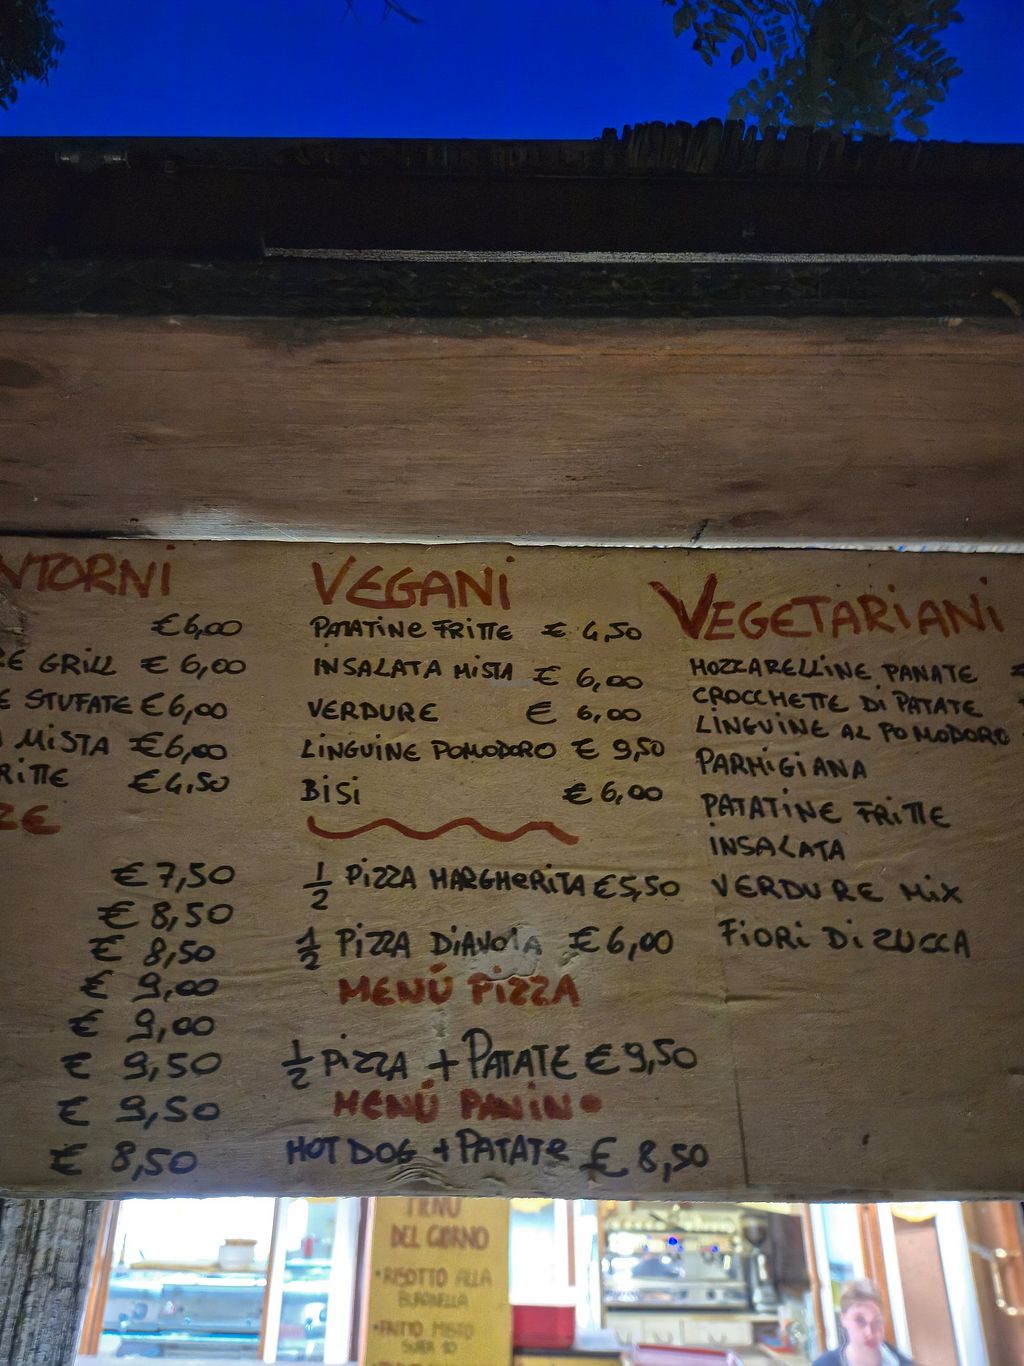 NTORNI
€ 6,00
E GRILL € 6,00
E STUFATE € 6,00
MISTA € 6,00
RITTE € 4,50
ZE
€ 7,50
€ 8,50
€ 8,50
€ 9,00
€ 9,00
€ 9,50
€ 9,50
€ 8,50
VEGANI
PATATINE FRITTE € 4,50
INSALATA MISTA € 6,00
VERDURE € 6,00
LINGUINE POMODORO € 9,50
BISI € 6,00
1/2 PIZZA MARGHERITA € 5,50
1/2 PIZZA DIAVOLA € 6,00
MENÚ PIZZA
1/2 PIZZA + PATATE € 9,50
MENÚ PANINO
HOT DOG + PATATE € 8,50
VEGETARIANI
MOZZARELLINE PANATE €
CROCCHETTE DI PATATE
LINGUINE AL POMODORO
PARMIGIANA
PATATINE FRITTE
INSALATA
VERDURE MIX
FIORI DI ZUCCA
MENU
DEL GIORNO
•RISOTTO ALLA
BURANELLA
•FRITTO MISTO